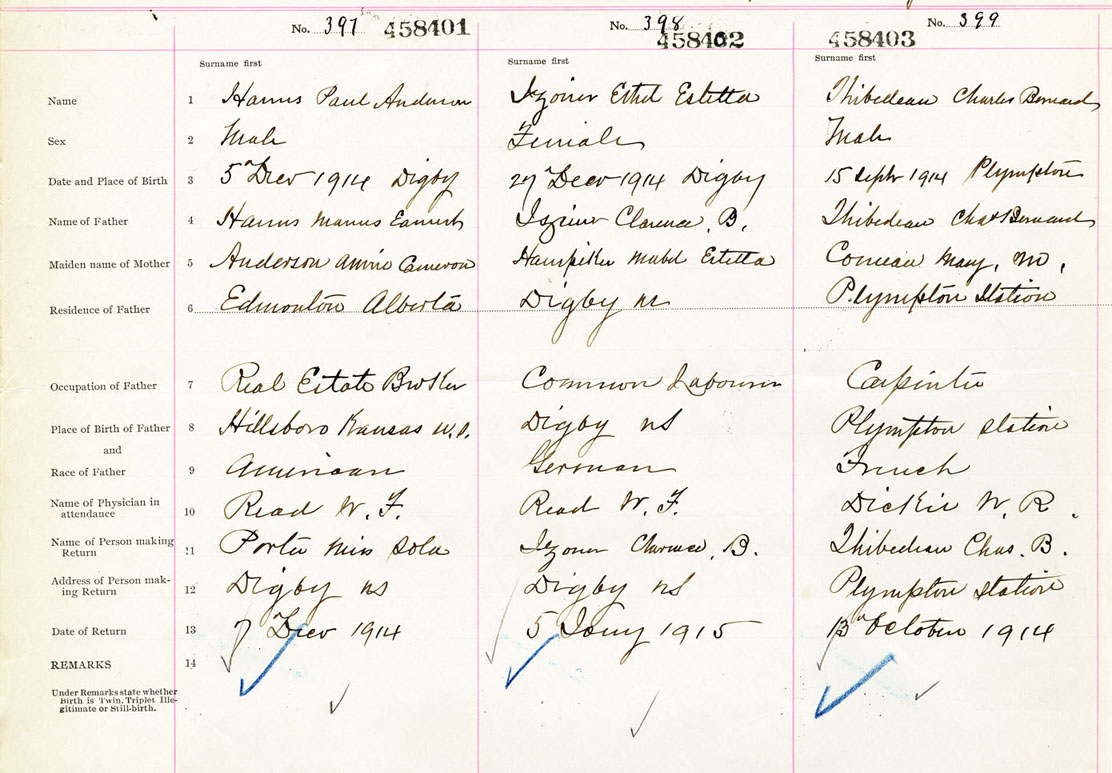 No. 397 458401
No. 398 458402
No. 399 458403
Surname first Surname first Surname first
Name 1 Harms Paul Anderson Ethel Estella Thibedeau Charles Bernard
Sex 2 Male Female Male
Date and Place of Birth 3 5 Decr 1914 Digby 27 Decr 1914 Digby 15 Septr 1914 Plympton
Name of Father 4 Harms Clarence. B. Thibedeau Chas Bernard
Maiden name of Mother 5 Anderson Cameron Mabel Estella Comeau Mary, M,
Residence of Father 6 Edmonton Alberta Digby ns Plympton Station
Occupation of Father 7 Real Estate Broker Common Labourer Carpinter
Place of Birth of Father 8 Hillsboro Kansas U.S. Digby NS Plympton Station
and
Race of Father 9 American German French
Name of Physician in
attendance 10 Read W. F. Read W. F. Dickie W. R.
Name of Person making
Return 11 Porter Miss Lola Clarence. B. Thibedeau Chas. B.
Address of Person mak-
ing Return 12 Digby NS Digby NS Plympton Station
Date of Return 13 7 Decr 1914 5 Jany 1915 13 October 1914
REMARKS 14
Under Remarks state whether
Birth is Twin, Triplet Ille-
gitimate or Still-birth.